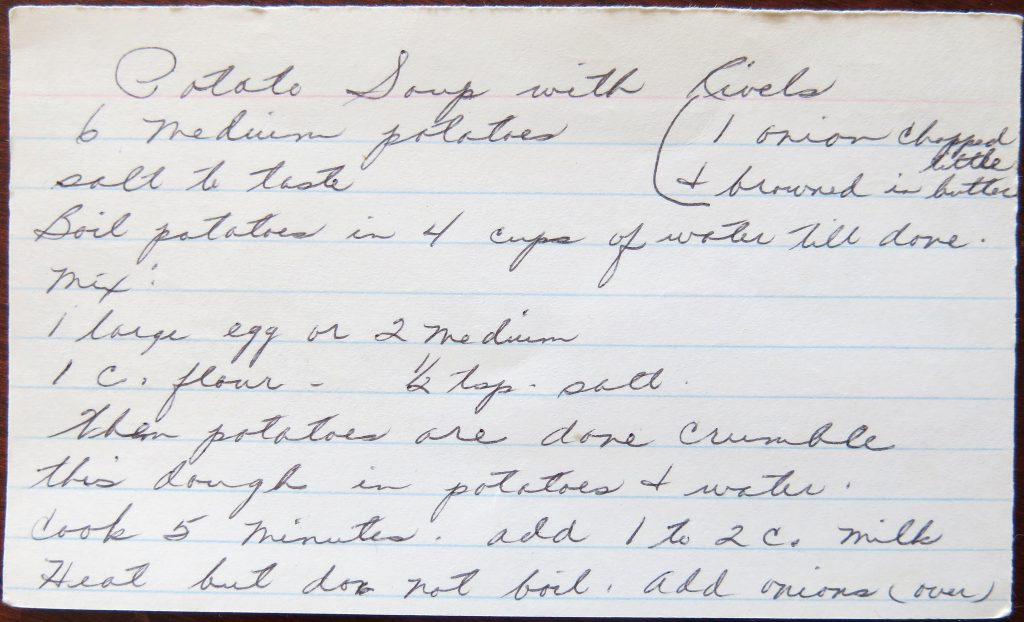 Potato Soup with Rivels
6 medium potatoes
(1 onion chopped
salt to taste
& browned in little butter
Boil potatoes in 4 cups of water till done.
Mix:
1 large egg or 2 medium
1 c. flour - 1/2 tsp. salt.
When potatoes are done crumble
this dough in potatoes & water.
Cook 5 minutes. add 1 to 2 c. milk
Heat but do not boil. Add onions (over)